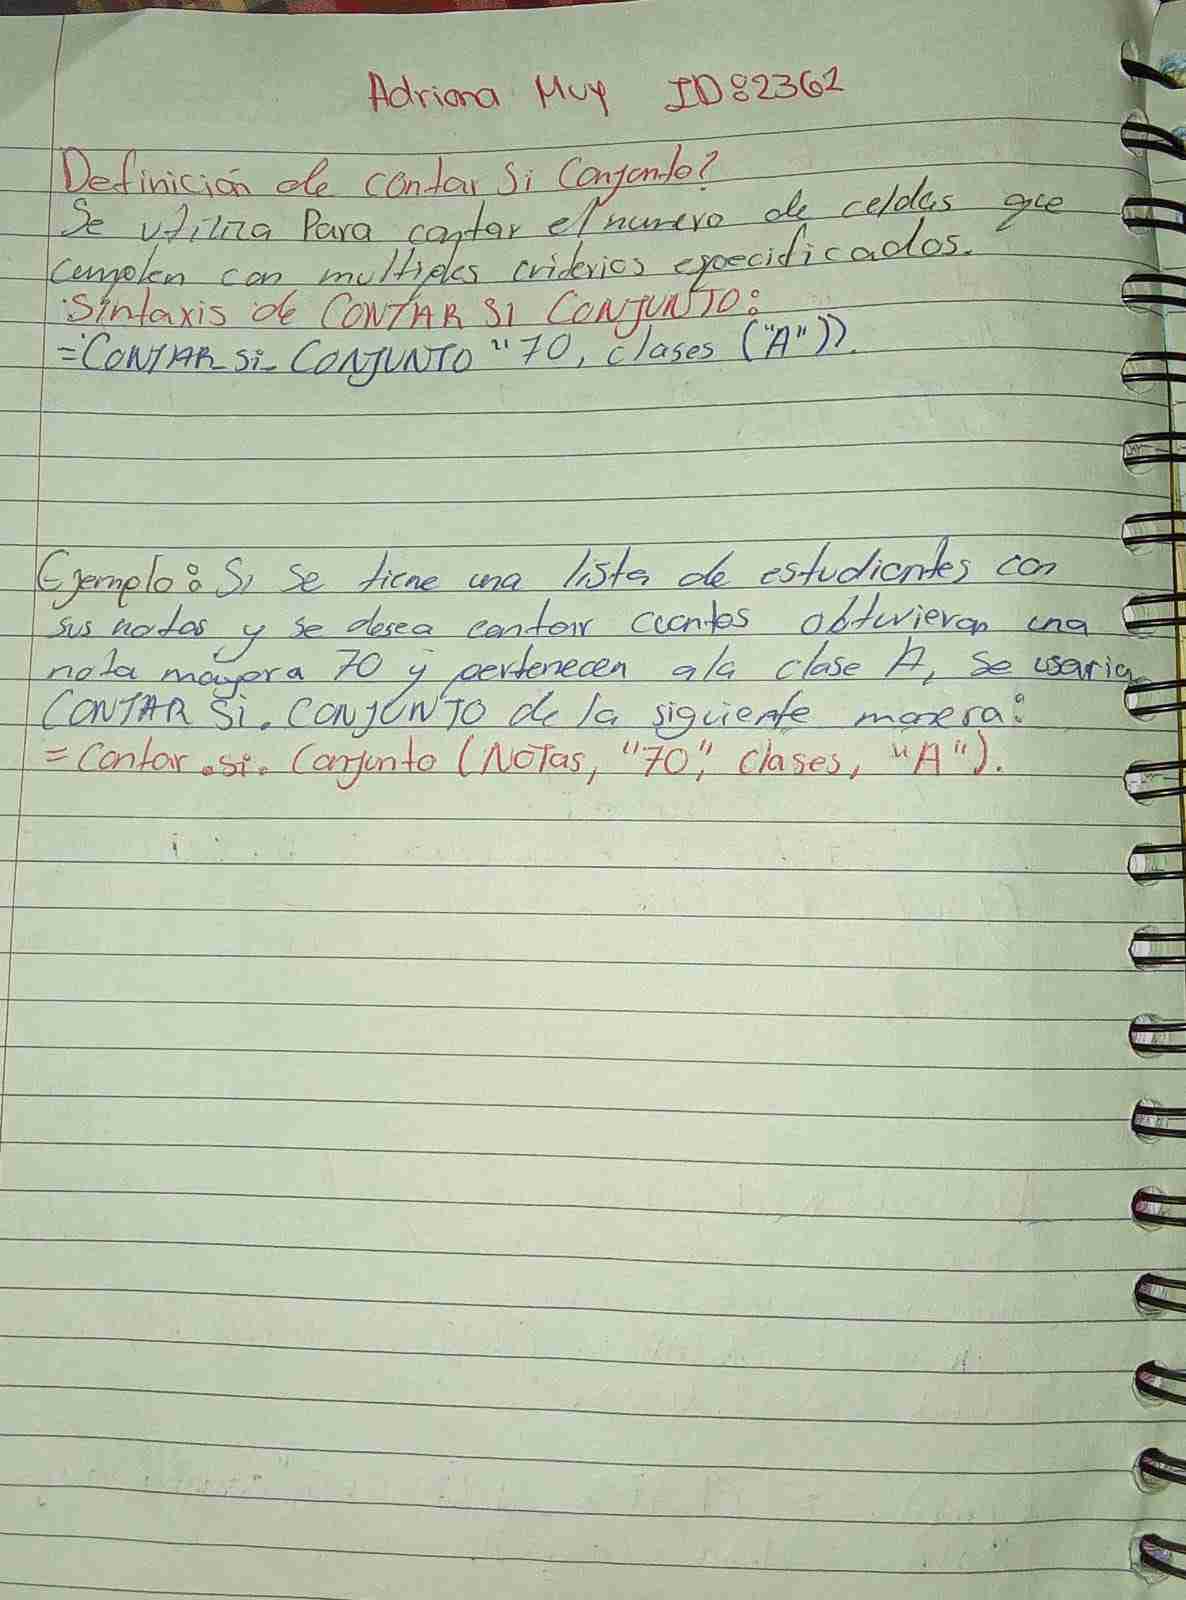 Adriana Muy ID:2362
Definición de contar Si Conjunto?
Se utiliza Para contar el numero de celdas que
cumplen con multiples criterios especificados.
Sintaxis de CONTAR SI CONJUNTO:
=CONTAR Si- CONJUNTO "70, clases ("A")).
Ejemplo: Si se tiene una lista de estudiantes con
sus notas y se desea contar cuantos obtuvieron una
nota mayora 70 y pertenecen ala clase A, se usaria
CONTAR Si. CONJUNTO de la siguiente manera:
= Contar .si. Conjunto (NOTas, "70", clases, "A").